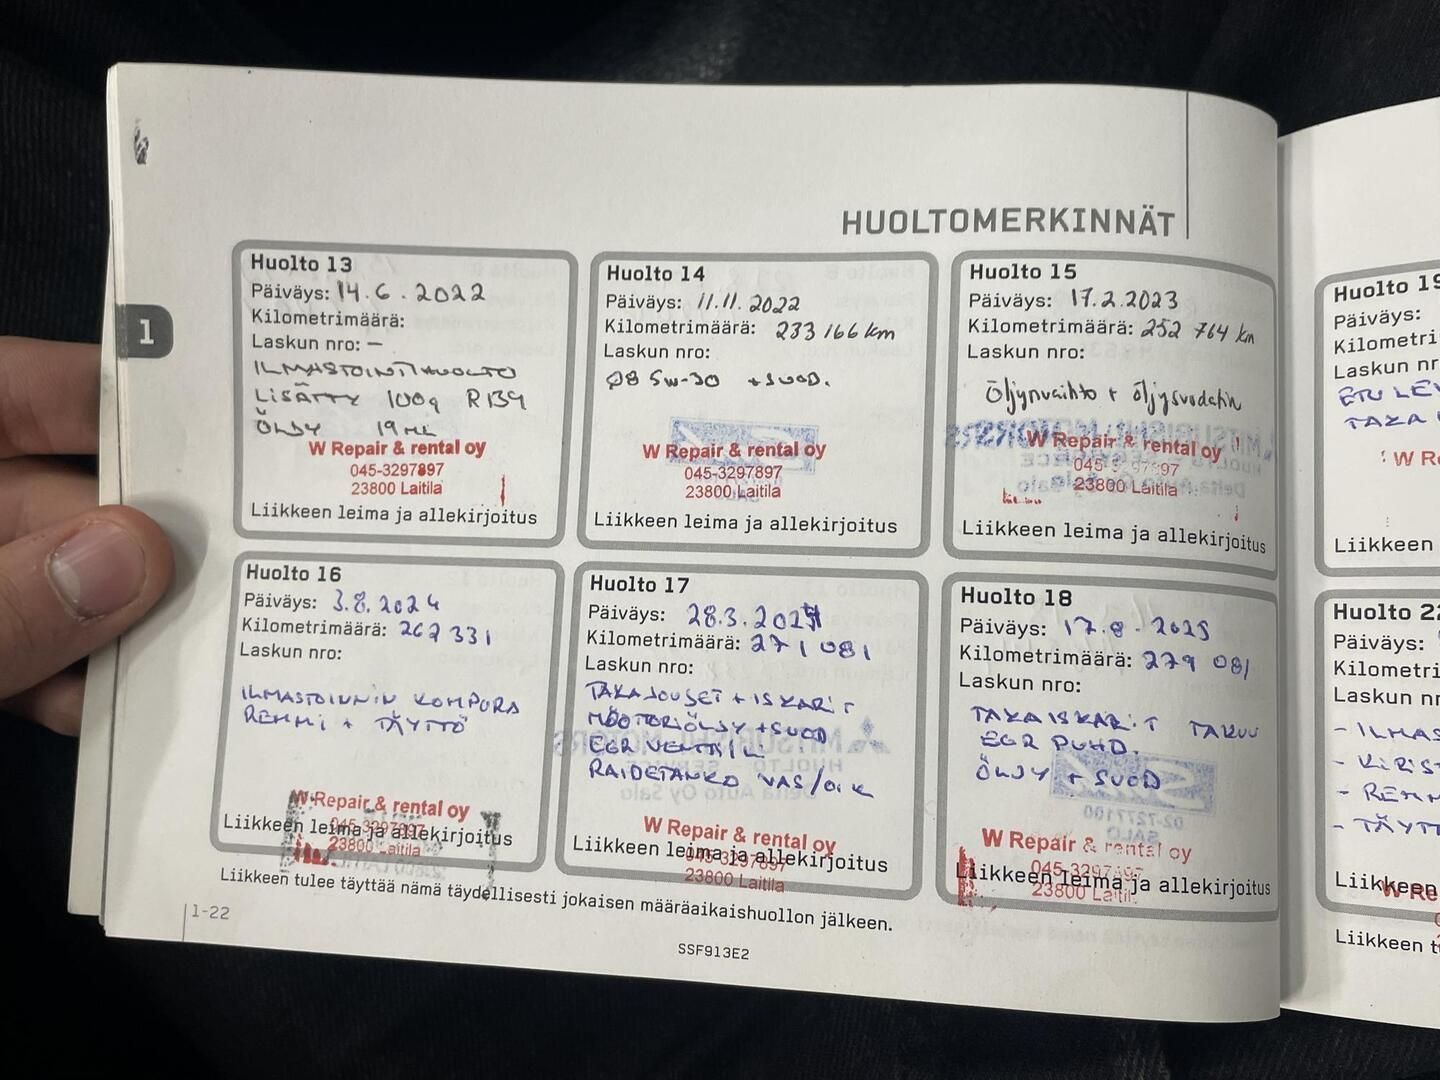 HUOLTOMERKINNÄT
1
Huolto 13
Päiväys: 14.6.2022
Kilometrimäärä:
Laskun nro: –
ILMASTOINTIHUOLTO
LISÄTTY 100g R134
ÖLJY 19 ML
W Repair & rental oy
045-3297897
23800 Laitila
Liikkeen leima ja allekirjoitus
Huolto 14
Päiväys: 11.11.2022
Kilometrimäärä: 233 166 km
Laskun nro:
Q8 5W-30 +SUOD.
W Repair & rental oy
045-3297897
23800 Laitila
Liikkeen leima ja allekirjoitus
Huolto 15
Päiväys: 17.2.2023
Kilometrimäärä: 252 764 km
Laskun nro:
Öljynvaihto + öljysuodatin
W Repair & rental oy
045-3297897
23800 Laitila
Liikkeen leima ja allekirjoitus
Huolto 16
Päiväys: 3.8.2024
Kilometrimäärä: 262 331
Laskun nro:
ILMASTOINNIN KOMPURA
REHMI + TÄYTTÖ
W Repair & rental oy
045-3297897
23800 Laitila
Liikkeen leima ja allekirjoitus
Huolto 17
Päiväys: 28.3.2024
Kilometrimäärä: 271 081
Laskun nro:
TAKAJOUSET + ISKARIT
MOOTORIÖLJY +SUOD
EGR VENTTIILI
RAIDETANKO VAS/OIK
W Repair & rental oy
045-3297897
23800 Laitila
Liikkeen leima ja allekirjoitus
Huolto 18
Päiväys: 17.8.2025
Kilometrimäärä: 279 081
Laskun nro:
TAKAISKARIT TAKUU
EGR PUHD.
ÖLJY + SUOD
W Repair & rental oy
045-3297897
23800 Laitila
Liikkeen leima ja allekirjoitus
Liikkeen tulee täyttää nämä täydellisesti jokaisen määräaikaishuollon jälkeen.
1-22
SSF913E2
Huolto 19
Päiväys:
Kilometri
Laskun n
ETU LE
TAKA
W Re
Liikkeen
Huolto 22
Päiväys:
Kilometri
Laskun n
- ILMAS
- KIRIST
- REMM
- TÄYTT
Liikkeen
W Re
Liikkeen t